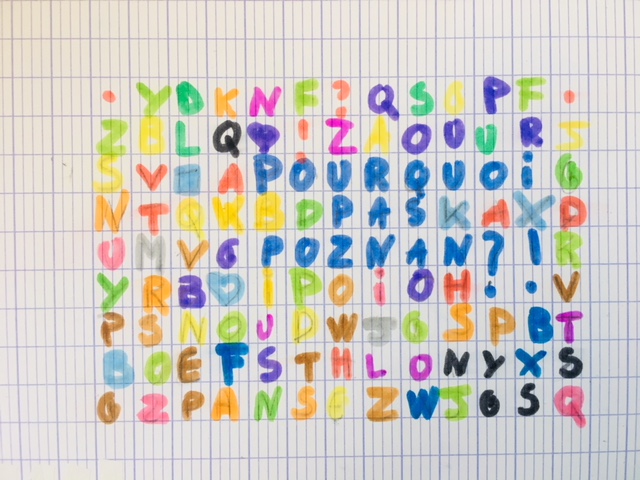 • Y D K N F ? Q S O P F •
Z B L Q ! Z A O U U R S
S V A P O U R Q U O i Q
N T Q K B D P A S K A X D
U M V 6 P O Z N A N ? ! R
Y R B ♡ i P O i O H V
P S N O J D W J G S P B T
B O E F S T H L O N Y X S
O Z P A N S Z W J 6 S Q